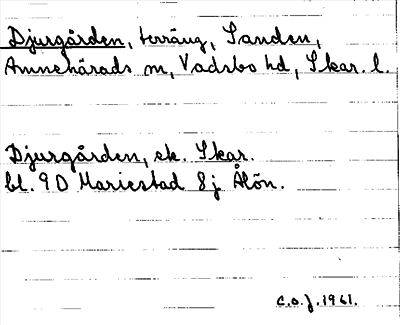 Djurgården, terräng, Sanden,
Amnehärads sn, Vadsbo hd, Skar. l.
Djurgården, ek. Skar.
bl. 9D Mariestad 8j Ålön.
C.O.J. 1961.